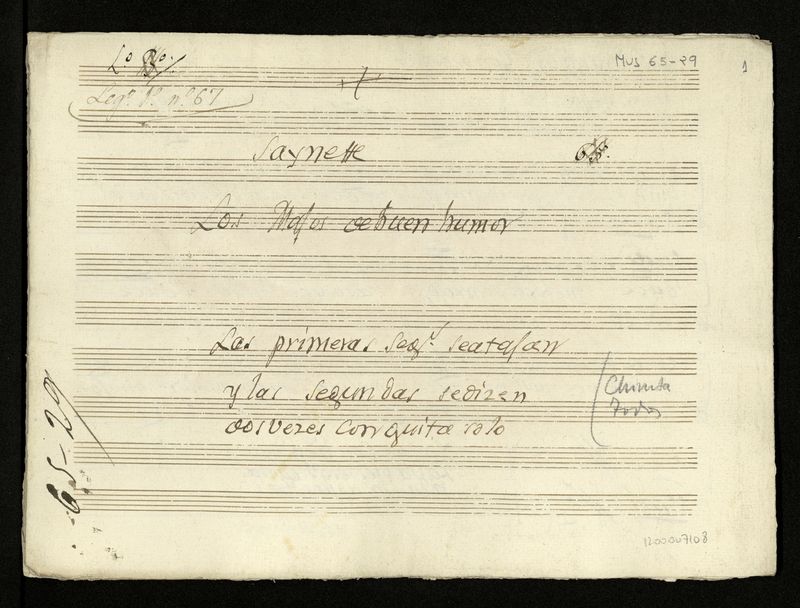 Mus 65-29
1
Leg.º 1º. nº. 67
Saynette
Los Majos de buen humor
Las primeras Seg.s se atajan
y las segundas se dizen
dos vezes con quita solo
Chinita
Todos
65-29
1200047108